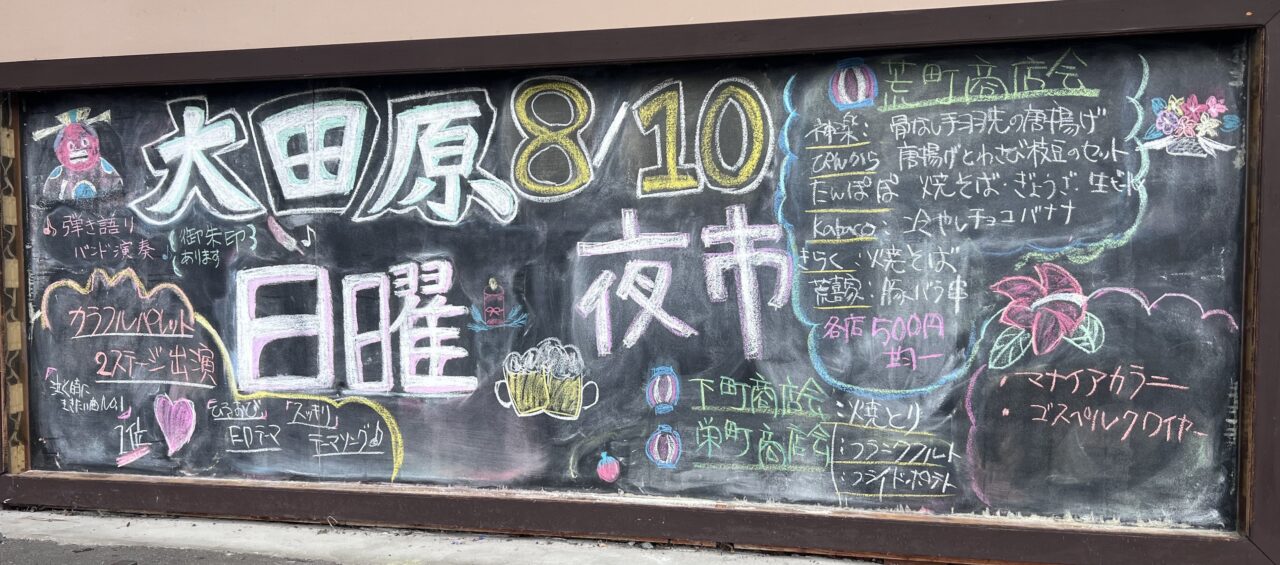 大田原 8/10
日曜 夜市
♪弾き語り
バンド演奏♪
御朱印
あります
カラフルパレット
2ステージ出演
「泣く前に
1位
「ひるおび」
EDテーマ
「スッキリ」
テーマソング♪
荒町商店会
神楽：骨なし手羽先の唐揚げ
ぴんから 唐揚げとわさび枝豆のセット
たんぽぽ 焼そば・ぎょうざ・生ビール
Kabaco：冷やしチョコバナナ
きらく：焼そば
荒喜家：豚バラ串
各店500円
均一
下町商店会：焼とり
栄町商店会：フランクフルト
：フライドポテト
・マナイアカラニ
・ゴスペルクワイヤー